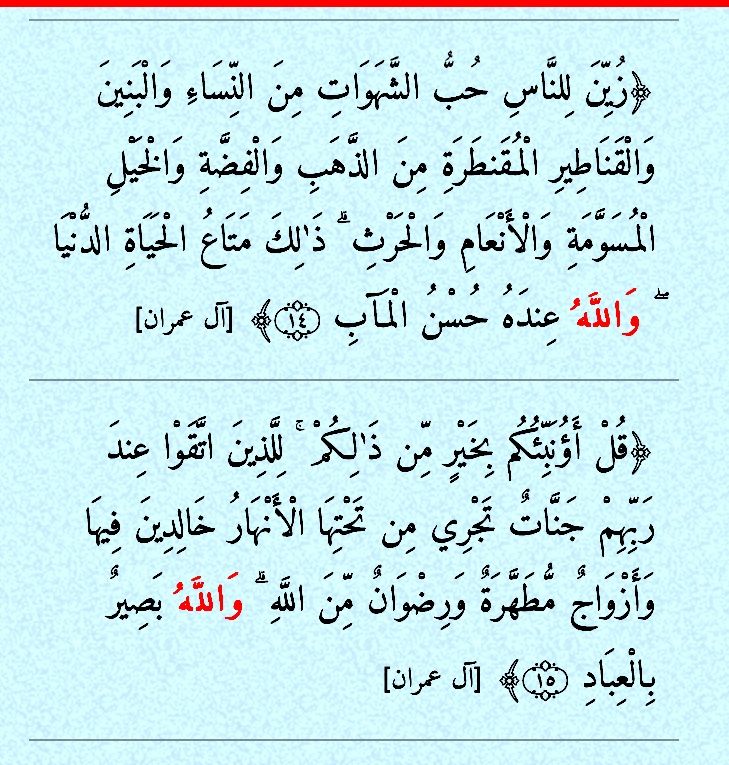 ﴿زُيِّنَ لِلنَّاسِ حُبُّ الشَّهَوَاتِ مِنَ النِّسَاءِ وَالْبَنِينَ
وَالْقَنَاطِيرِ الْمُقَنطَرَةِ مِنَ الذَّهَبِ وَالْفِضَّةِ وَالْخَيْلِ
الْمُسَوَّمَةِ وَالْأَنْعَامِ وَالْحَرْثِ ۗ ذَٰلِكَ مَتَاعُ الْحَيَاةِ الدُّنْيَا
ۖ وَاللَّهُ عِندَهُ حُسْنُ الْمَآبِ ۝١٤﴾ [آل عمران]
﴿قُلْ أَؤُنَبِّئُكُم بِخَيْرٍ مِّن ذَٰلِكُمْ ۚ لِلَّذِينَ اتَّقَوْا عِندَ
رَبِّهِمْ جَنَّاتٌ تَجْرِي مِن تَحْتِهَا الْأَنْهَارُ خَالِدِينَ فِيهَا
وَأَزْوَاجٌ مُّطَهَّرَةٌ وَرِضْوَانٌ مِّنَ اللَّهِ ۗ وَاللَّهُ بَصِيرٌ
بِالْعِبَادِ ۝١٥﴾ [آل عمران]